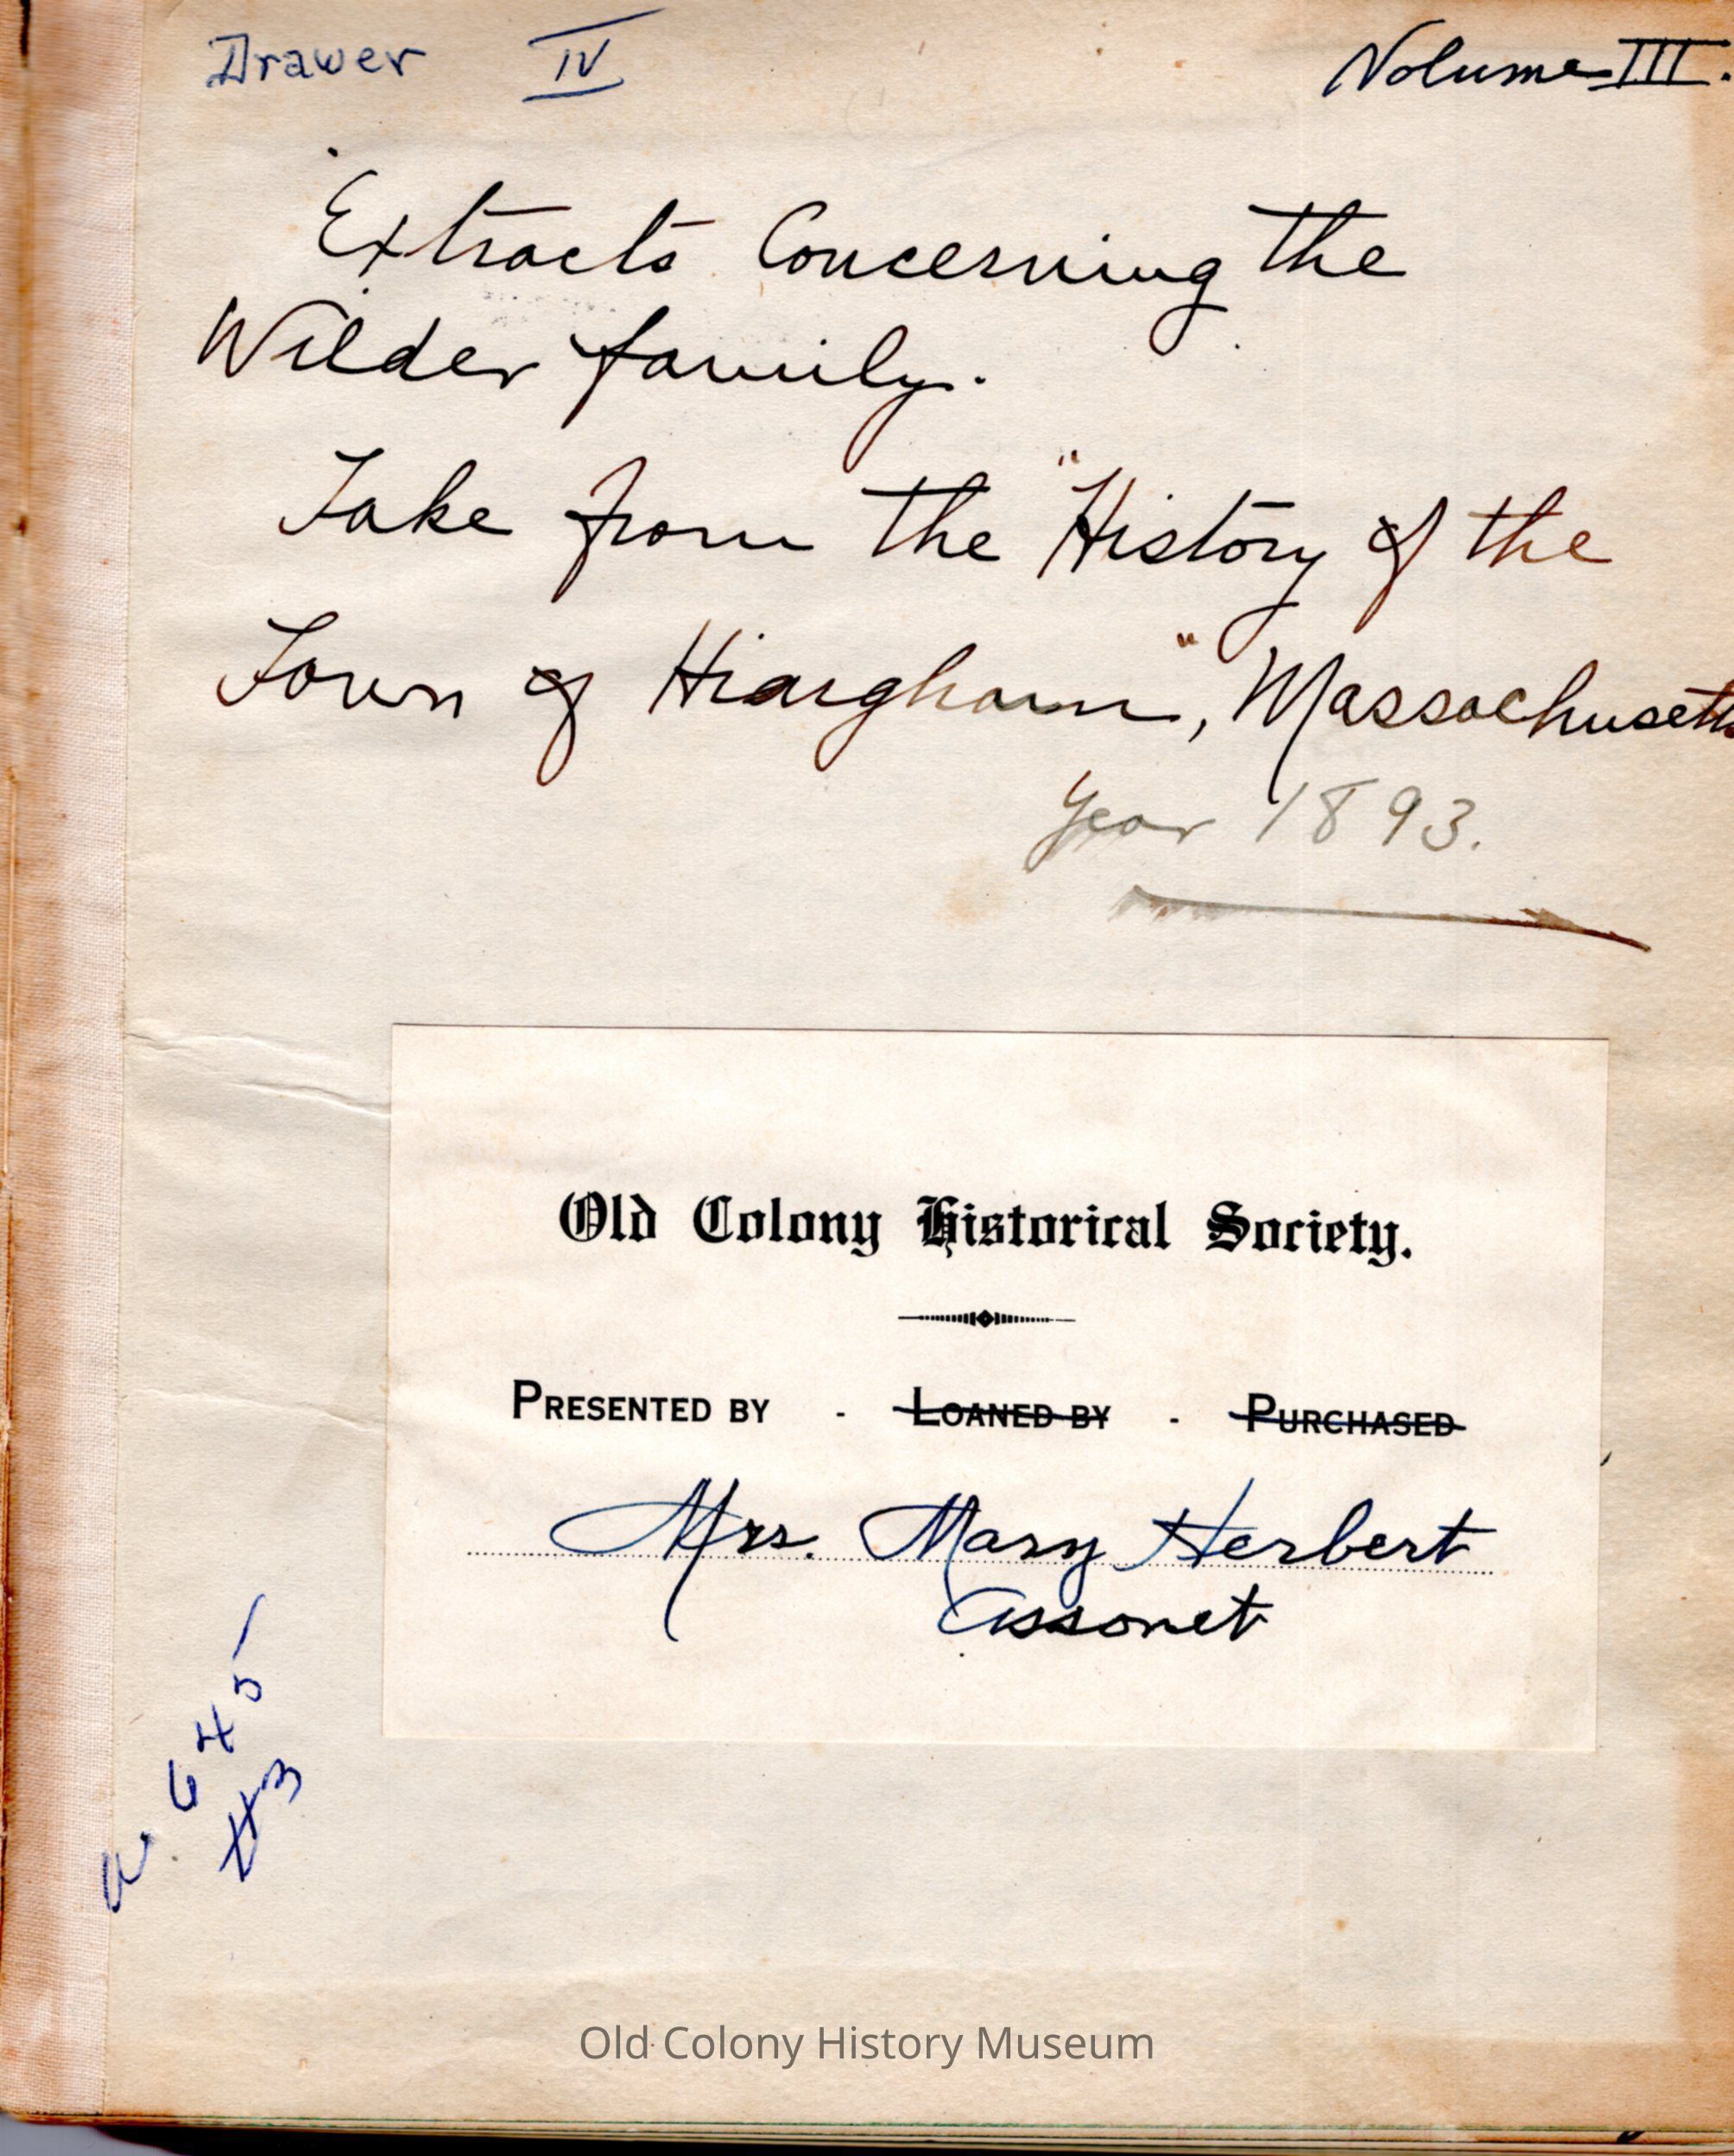 Drawer IV
Volume III.
Extracts Concerning the
Wilder family.
Take from the "History of the
Town of Hingham", Massachusetts
Year 1893.
Old Colony Historical Society.
PRESENTED BY - LOANED BY - PURCHASED
Mrs. Mary Herbert
Assonet
645
#3
Old Colony History Museum